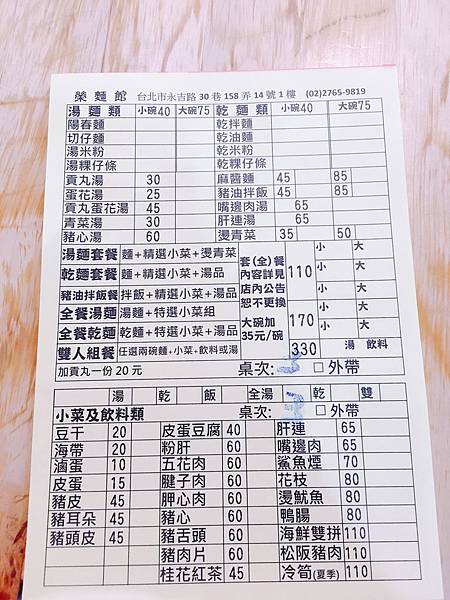 榮麵館 台北市永吉路30巷158弄14號1樓 (02)2765-9819
湯麵類 小碗40 大碗75 乾麵類 小碗40 大碗75
陽春麵 乾拌麵
切仔麵 乾油麵
湯米粉 乾米粉
湯粿仔條 乾粿仔條
貢丸湯 30 麻醬麵 45 85
蛋花湯 25 豬油拌飯 45 85
貢丸蛋花湯 45 嘴邊肉湯 65
青菜湯 30 肝連湯 65
豬心湯 60 燙青菜 35 50
湯麵套餐 麵+精選小菜+燙青菜
乾麵套餐 麵+精選小菜+湯品
豬油拌飯餐 拌飯+精選小菜+湯品
全餐湯麵 湯麵+特選小菜組
全餐乾麵 乾麵+特選小菜+湯品
雙人組餐 任選兩碗麵+小菜+飲料或湯
套(全)餐
內容詳見
店內公告
恕不更換
大碗加
35元/碗
110 小 大
小 大
小 大
170 小 大
小 大
330 湯 飲料
加貢丸一份20元 桌次: □外帶
湯 乾 飯 全湯 乾 雙
小菜及飲料類 桌次: □外帶
豆干 20 皮蛋豆腐 40 肝連 65
海帶 20 粉肝 60 嘴邊肉 65
滷蛋 10 五花肉 60 鯊魚煙 70
皮蛋 15 腱子肉 60 花枝 80
豬皮 45 胛心肉 60 燙魷魚 80
豬耳朵 45 豬心 60 鴨腸 80
豬頭皮 45 豬舌頭 60 海鮮雙拼 110
豬肉片 60 松阪豬肉 110
桂花紅茶 45 冷筍(夏季) 110